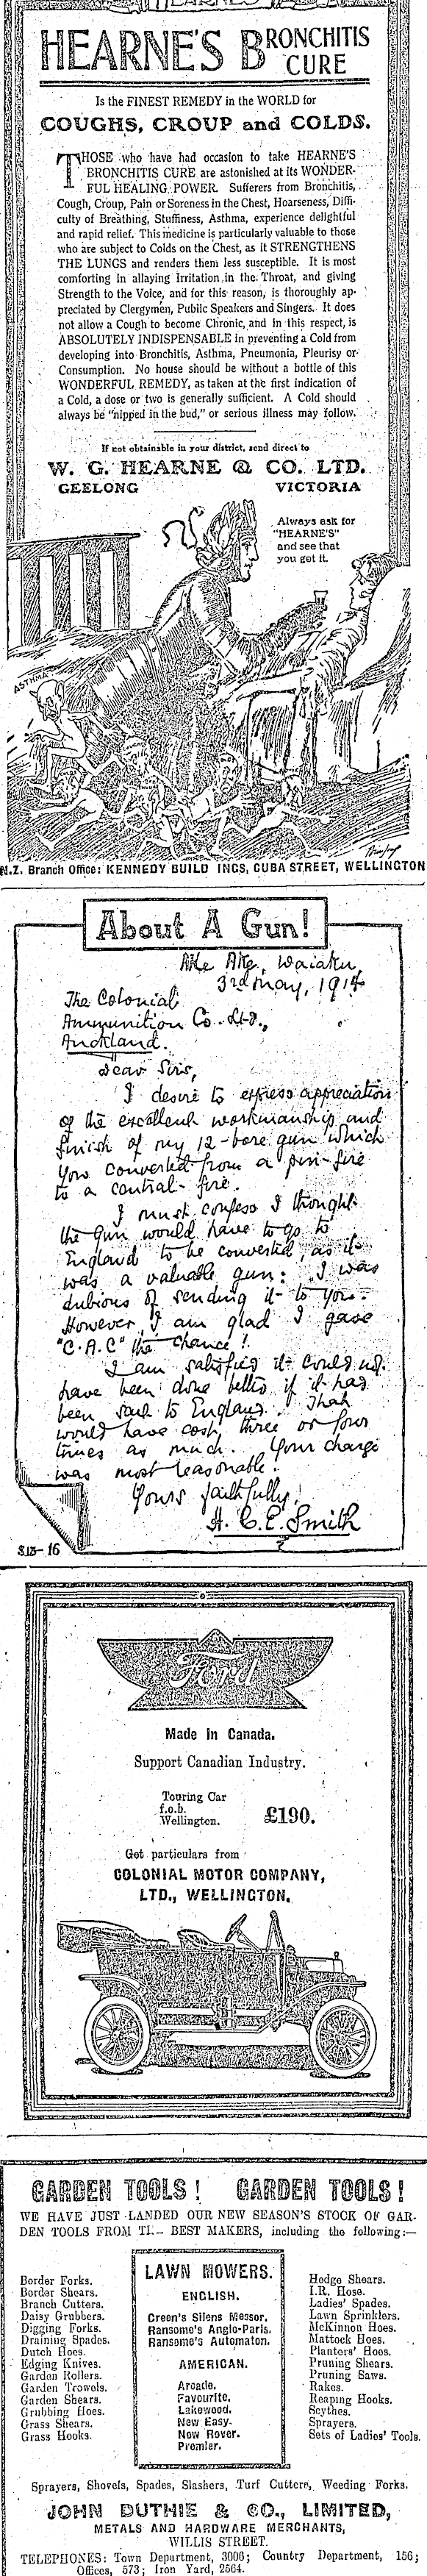 HEARNE'S
HEARNE'S BRONCHITIS
CURE
Is the FINEST REMEDY in the WORLD for
COUGHS, CROUP and COLDS.
THOSE who have had occasion to take HEARNE'S
BRONCHITIS CURE are astonished at its WONDER-
FUL HEALING POWER. Sufferers from Bronchitis,
Cough, Croup, Pain or Soreness in the Chest, Hoarseness, Diffi-
culty of Breathing, Stuffiness, Asthma, experience delightful
and rapid relief. This medicine is particularly valuable to those
who are subject to Colds on the Chest, as it STRENGTHENS
THE LUNGS and renders them less susceptible. It is most
comforting in allaying Irritation in the Throat, and giving
Strength to the Voice, and for this reason, is thoroughly ap-
preciated by Clergymen, Public Speakers and Singers. It does
not allow a Cough to become Chronic, and in this respect, is
ABSOLUTELY INDISPENSABLE in preventing a Cold from
developing into Bronchitis, Asthma, Pneumonia, Pleurisy or
Consumption. No house should be without a bottle of this
WONDERFUL REMEDY, as taken at the first indication of
a Cold, a dose or two is generally sufficient. A Cold should
always be "nipped in the bud," or serious illness may follow.
If not obtainable in your district, send direct to
W. G. HEARNE & CO. LTD.
GEELONG VICTORIA
Always ask for
"HEARNE'S"
and see that
you get it.
ASTHMA
N.Z. Branch Office: KENNEDY BUILD INGS, CUBA STREET, WELLINGTON
About A Gun!
Ake Ake, Waiaku,
3rd May, 1914
The Colonial
Ammunition Co. Ltd.,
Auckland.
Dear Sirs,
I desire to express appreciation
of the excellent workmanship and
finish of my 12-bore gun which
you converted from a pin-fire
to a central-fire.
I must confess I thought
the gun would have to go to
England to be converted, as it
was a valuable gun: I was
dubious of sending it to you.
However, I am glad I gave
"C.A.C" the chance!
I am satisfied it could not
have been done better if it had
been sent to England. That
would have cost three or four
times as much. Your charge
was most reasonable.
Yours faithfully,
H. C. E. Smith
S13-16
Ford
Made in Canada.
Support Canadian Industry.
Touring Car
f.o.b.
Wellington. £190.
Get particulars from
COLONIAL MOTOR COMPANY,
LTD., WELLINGTON.
GARDEN TOOLS! GARDEN TOOLS!
WE HAVE JUST LANDED OUR NEW SEASON'S STOCK OF GAR-
DEN TOOLS FROM BEST MAKERS, including the following:—
Border Forks.
Border Shears.
Branch Cutters.
Daisy Grubbers.
Digging Forks.
Draining Spades.
Dutch Hoes.
Edging Knives.
Garden Rollers.
Garden Trowels.
Garden Shears.
Grubbing Hoes.
Grass Shears.
Grass Hooks.
LAWN MOWERS.
ENGLISH.
Green's Silens Messor.
Ransome's Anglo-Paris.
Ransome's Automaton.
AMERICAN.
Arcadle.
Favourite.
Lakewood.
New Easy.
New Rover.
Premier.
Hedge Shears.
I.R. Hose.
Ladies' Spades.
Lawn Sprinklers.
McKinnon Hoes.
Mattock Hoes.
Planters' Hoes.
Pruning Shears.
Pruning Saws.
Rakes.
Reaping Hooks.
Scythes.
Sprayers.
Sets of Ladies' Tools.
Sprayers, Shovels, Spades, Slashers, Turf Cutters, Weeding Forks.
JOHN DUTHIE & CO., LIMITED,
METALS AND HARDWARE MERCHANTS,
WILLIS STREET.
TELEPHONES: Town Department, 3006; Country Department, 156;
Offices, 573; Iron Yard, 2564.